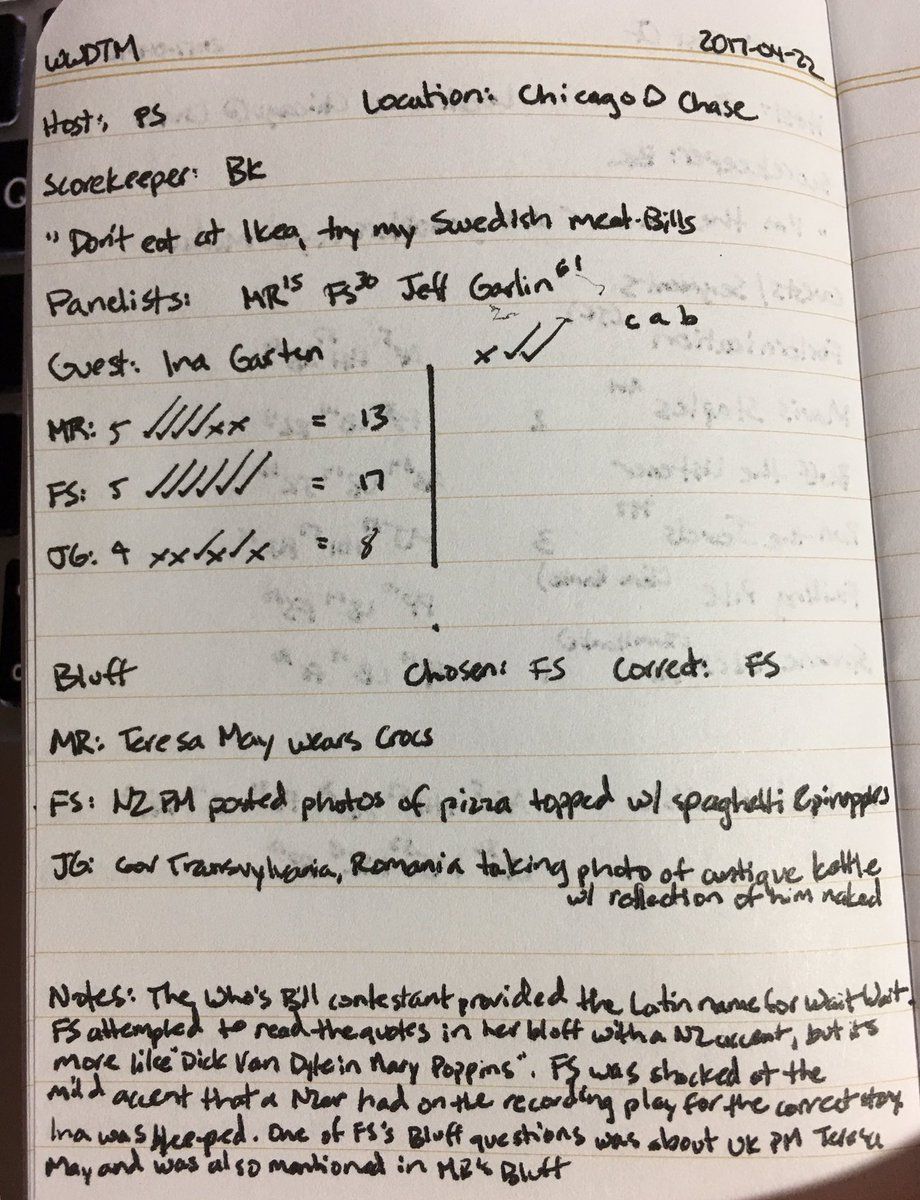 WWDTM 2017-04-22
Host: PS Location: Chicago Chase
Scorekeeper: BK
"Don't eat at Ikea, try my Swedish meat-Bills
Panelists: MR15 FS30 Jeff Garlin61
Guest: Ina Garten x✓✓ c a b
MR: 5 ✓✓✓✓xx = 13
FS: 5 ✓✓✓✓✓✓ = 17
JG: 4 xx✓x✓x = 8
Bluff Chosen: FS Correct: FS
MR: Teresa May wears Crocs
FS: NZ PM posted photos of pizza topped w/ spaghetti &
JG: Gov Transvylvania, Romania taking photo of antique kettle
w/ reflection of him naked
Notes: The Who's Bill contestant provided the Latin name for Wait Wait.
FS attempted to read the quotes in her bluff with a NZ accent, but it's
more like "Dick Van Dyke in Mary Poppins". FS was shocked at the
mild accent that a NZer had on the recording play for the correct story
Ina was bleeped. One of FS's Bluff questions was about UK PM Teresa
May and was also mentioned in MR's Bluff